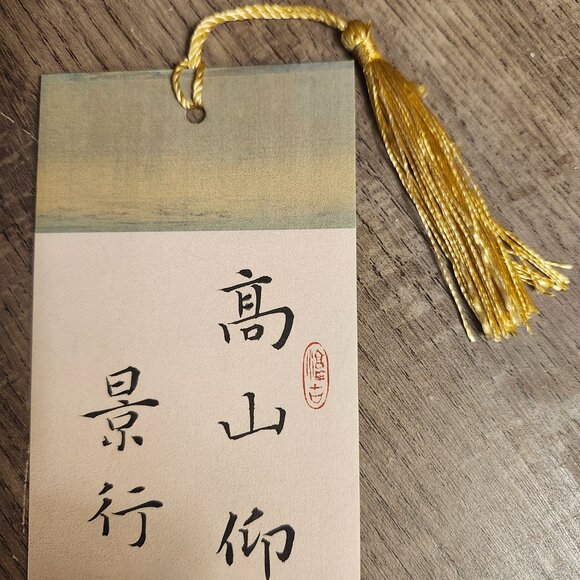 高山仰
景行